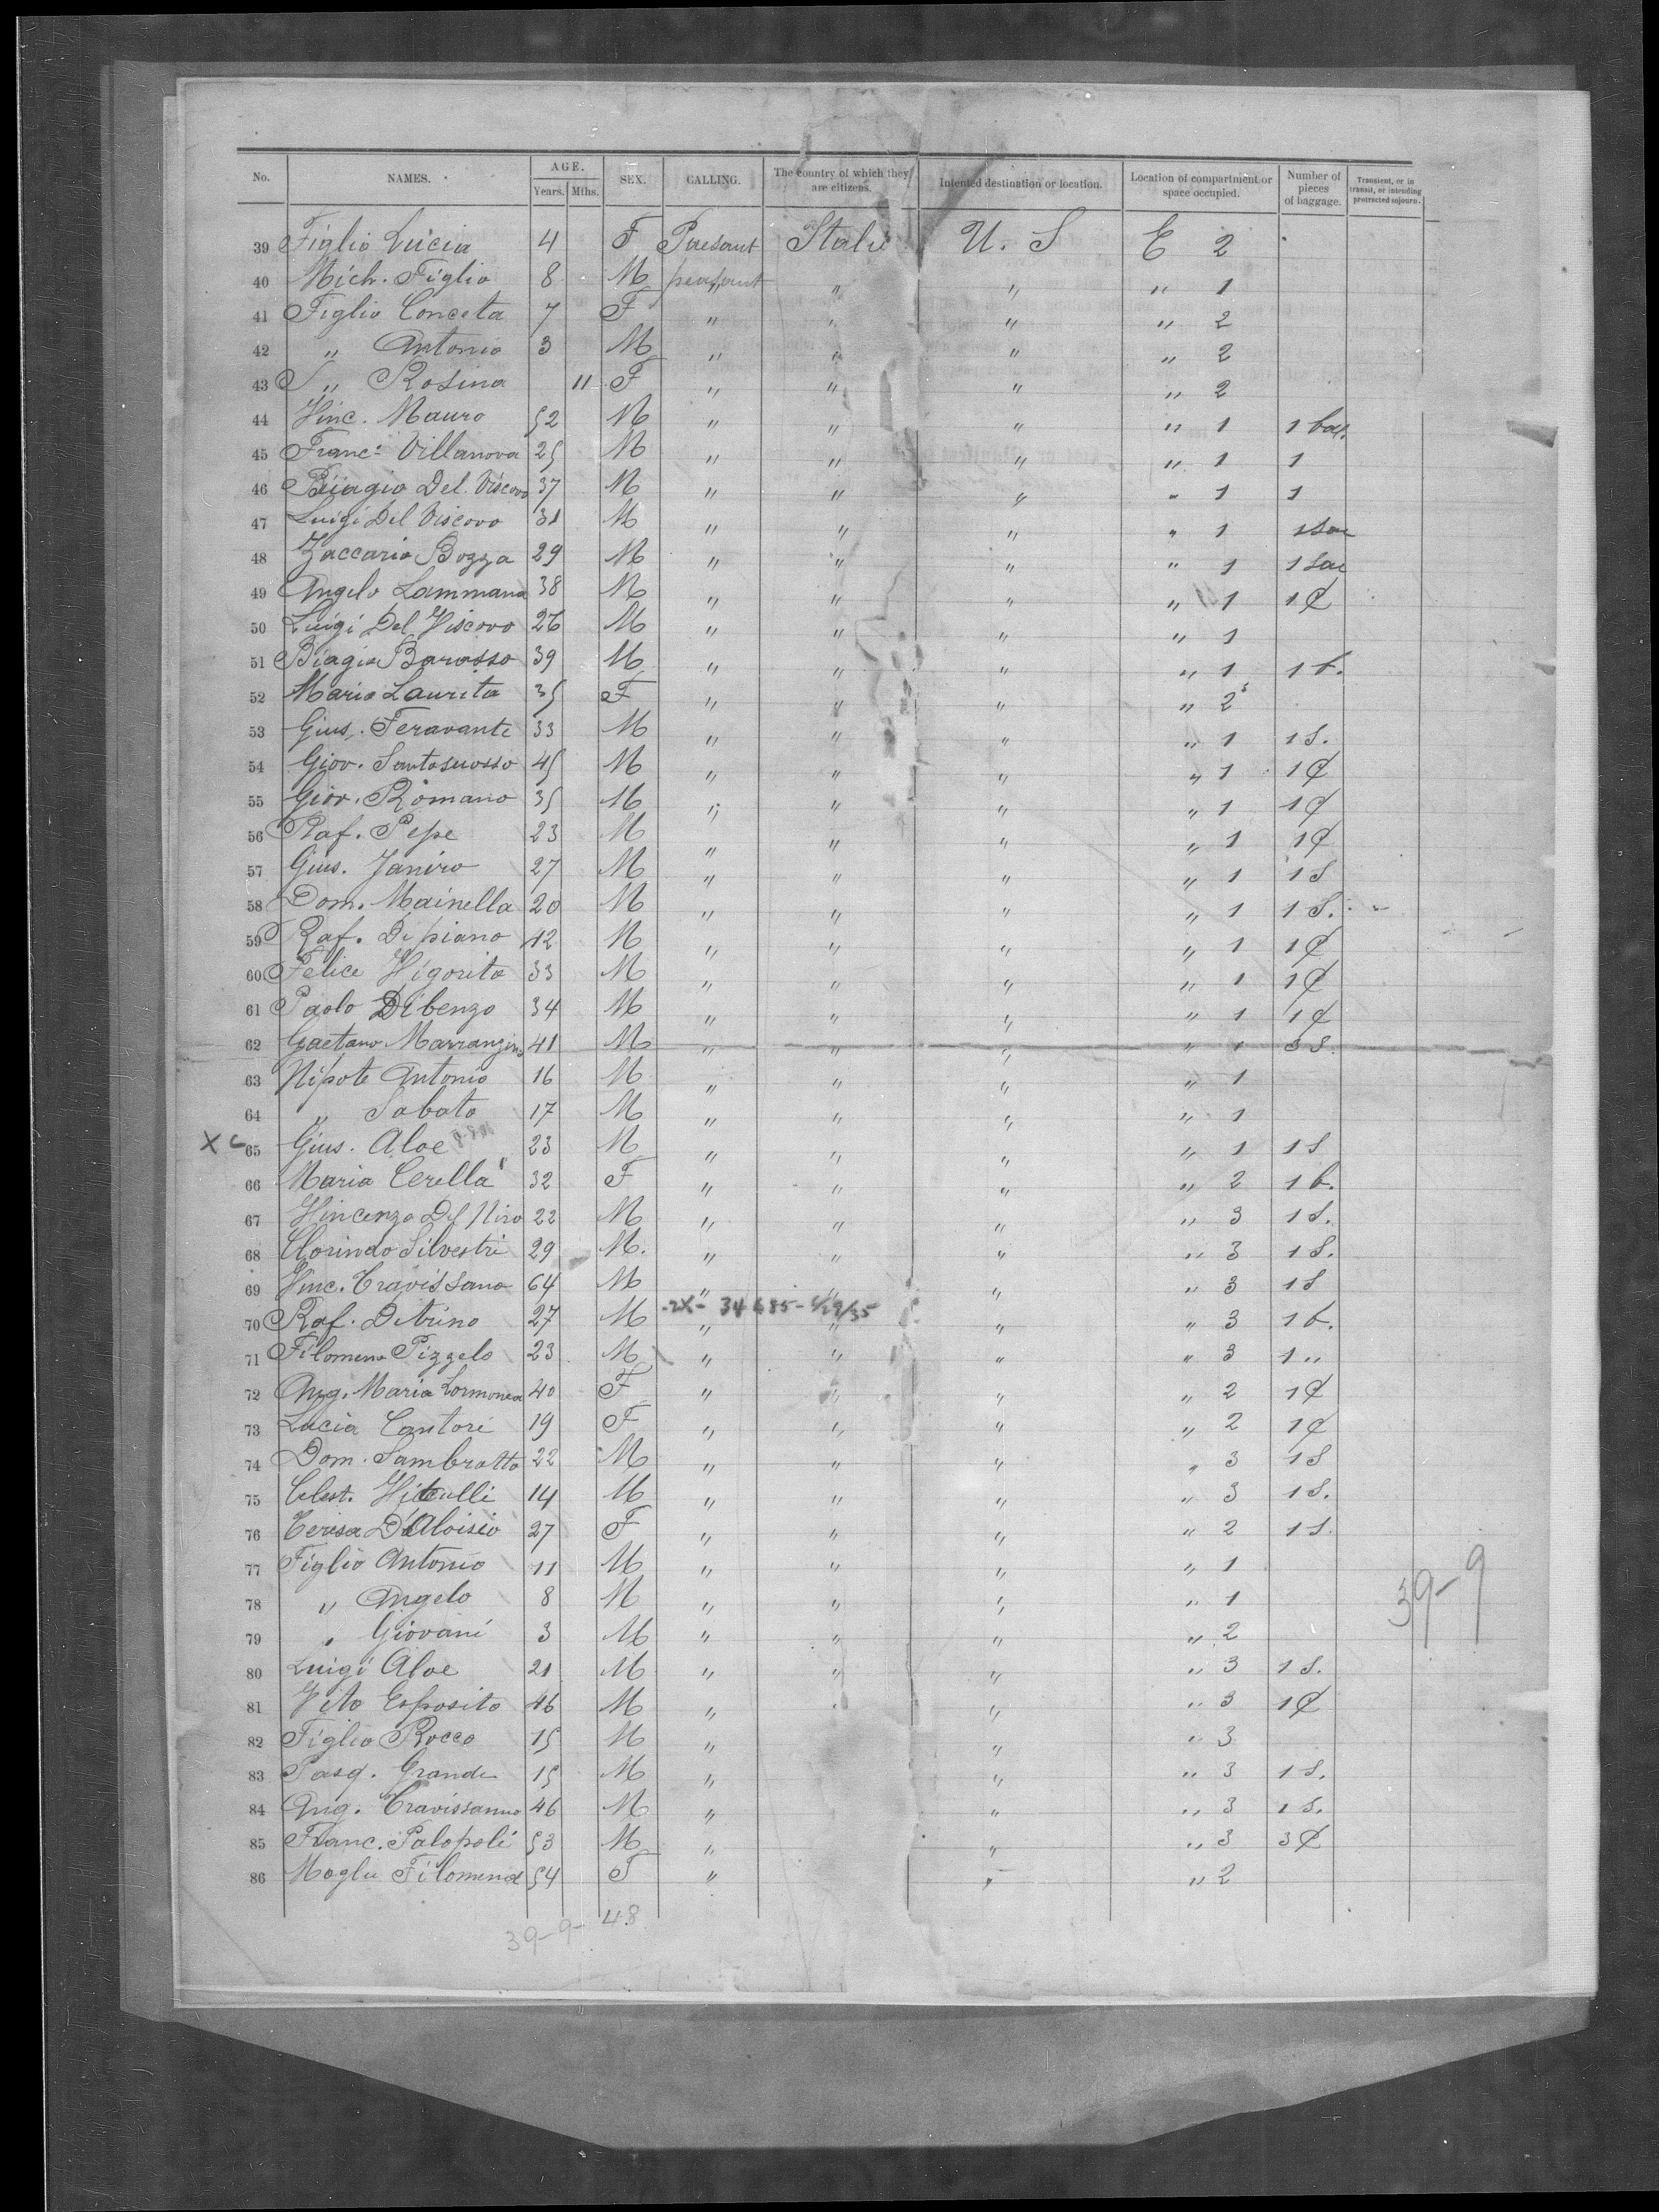 No. NAMES. AGE. Years. Mths. SEX. CALLING. The country of which they are citizens. Intented destination or location. Location of compartment or space occupied. Number of pieces of baggage. Transient, or in transit, or intending protracted sojourn.
39 Figlio Lucia 4 F Paesant Italie U. S E 2
40 Mich. Figlio 8 M peasant " " " 1
41 Figlio Conceta 7 F " " " " 2
42 " Antonio 3 M " " " " 2
43 " Rosina 11 F " " " " 2
44 Vinc. Mauro 52 M " " " " 1 1 bas.
45 Franc. Villanova 25 M " " " " 1 1
46 Biiagio Del Viscovo 37 M " " " " 1 1
47 Luigi Del Viscovo 31 M " " " " 1 1 sac
48 Zaccaria Bozza 29 M " " " " 1 1 sac
49 Angelo Lammana 38 M " " " " 1 1 ₵
50 Luigi Del Viscovo 26 M " " " " 1
51 Biagio Barasso 39 M " " " " 1 1 b.
52 Maria Laurita 35 F " " " " 2
53 Gius. Feravante 33 M " " " " 1 1 S.
54 Giov. Santosuosso 45 M " " " " 1 1 ₵
55 Giov. Romano 35 M " " " " 1 1 ₵
56 Raf. Pepe 23 M " " " " 1 1 ₵
57 Gius. Janiro 27 M " " " " 1 1 S
58 Dom. Mainella 20 M " " " " 1 1 S.
59 Raf. Depiano 42 M " " " " 1 1 ₵
60 Felice Vigorita 33 M " " " " 1 1 ₵
61 Paolo Dibenzo 34 M " " " " 1 1 ₵
62 Gaetano Marrangino 41 M " " " " 1 3 S.
63 Nipote Antonio 16 M " " " " 1
64 " Sabato 17 M " " " " 1
X C 65 Gius. Aloe 23 M " " " " 1 1 S
66 Maria Cerella 32 F " " " " 2 1 b.
67 Vincenzo Del Niro 22 M " " " " 3 1 S.
68 Clorindo Silvestri 29 M. " " " " 3 1 S.
69 Vinc. Travissano 64 M " " " " 3 1 S
2X- 34685-
70 Raf. Detrino 27 M " " " " 3 1 b.
71 Filomeno Pizzelo 23 M " " " " 3 1 "
72 Ang. Maria 40 F " " " " 2 1 ₵
73 Lucia Cantore 19 F " " " " 2 1 ₵
74 Dom. Sambrotto 22 M " " " " 3 1 S
75 Celest. Vitulli 14 M " " " " 3 1 S.
76 Teresa D'Aloisio 27 F " " " " 2 1 S.
77 Figlio Antonio 11 M " " " " 1
78 " Angelo 8 M " " " " 1
79 " Giovani 3 M " " " " 2
80 Luigi Aloe 21 M " " " " 3 1 S.
81 Vito Esposito 46 M " " " 3 1 ₵
82 Figlio Rocco 15 M " " " 3
83 Pasq. Grande 15 M " " " 3 1 S.
84 Ang. Travissanno 46 M " " " 3 1 S.
85 Franc. Palopoli 53 M " " " 3 3 ₵
86 Moglie Filomena 54 F " " " 2
39-9
39-9- 48